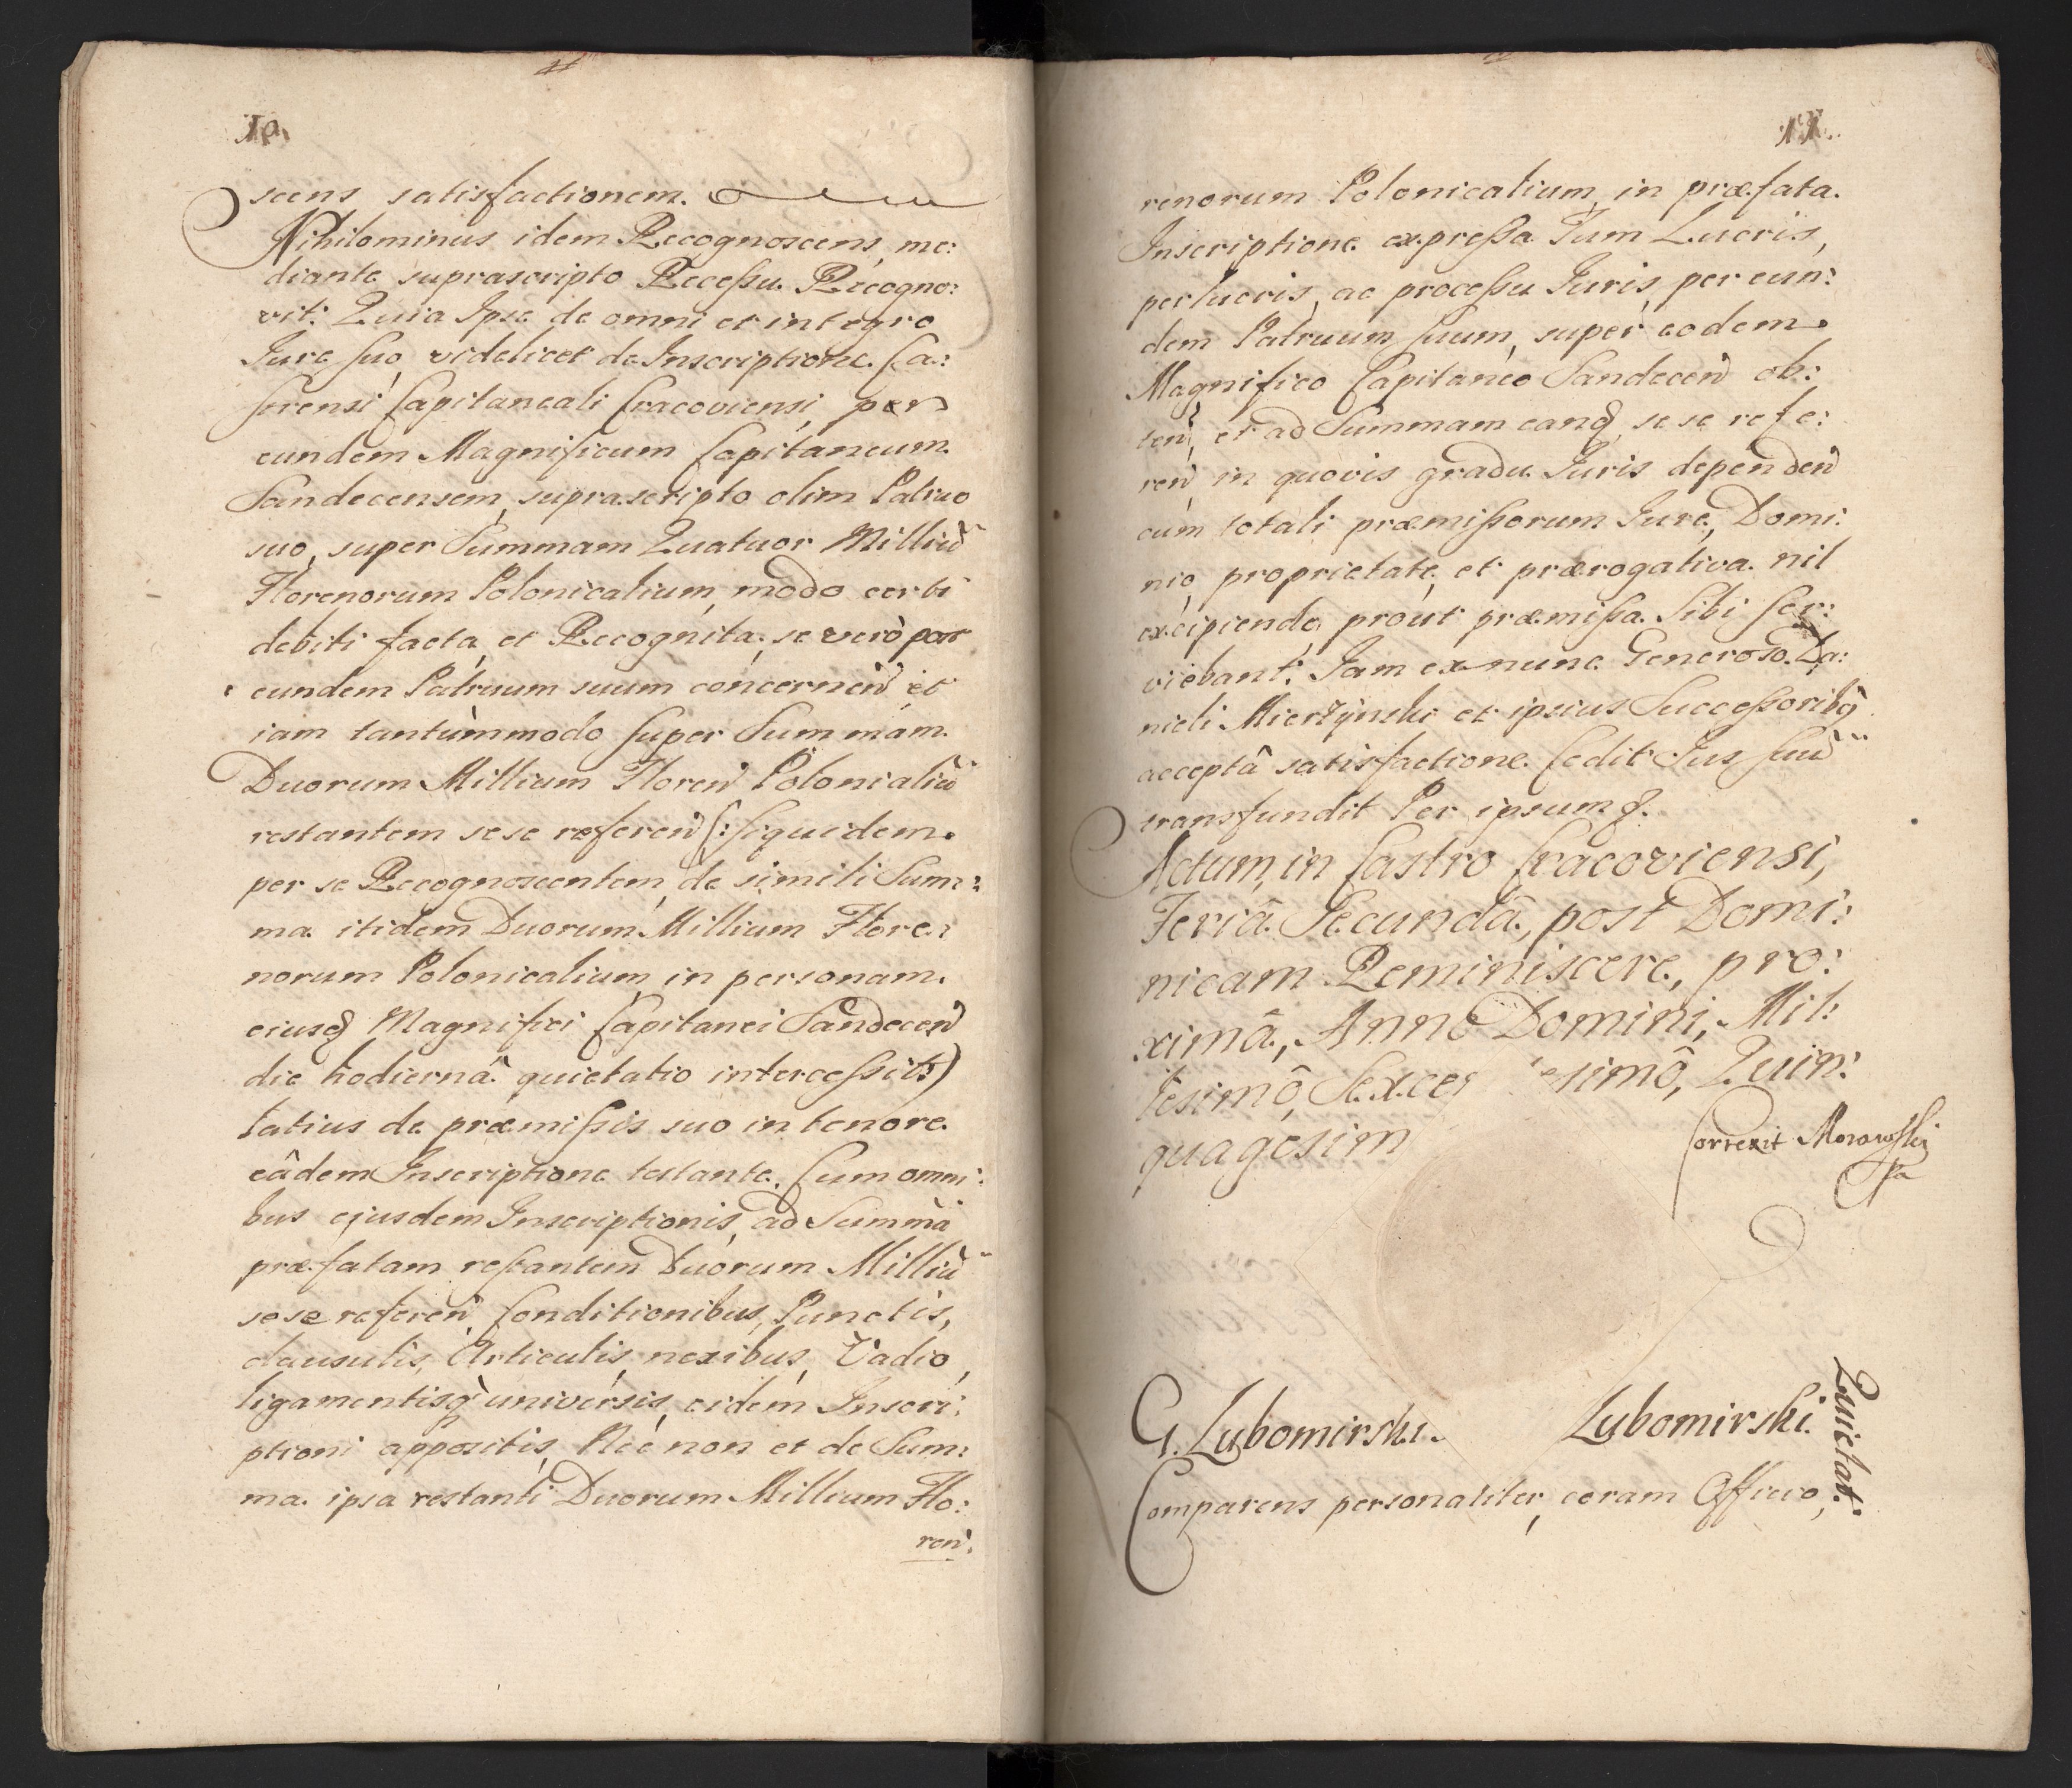 10.
scens satisfactionem.
Nihilominus idem Recognoscens, me:
diante suprascripto Recessu Recogno:
vit: Quia Ipse de omni et integro
Jure suo, videlicet de Inscriptione Ca:
strensi Capitaneali Cracoviensi, per
eundem Magnificum Capitaneum
Sandecensem, suprascripto olim Patruo
suo, super Summam Quatuor Milliũ
Florenorum Polonicalium, modo certi
debiti facta, et Recognita, se verò per
eundem Patruum suum concernen̄ et
iam tantùmmodo super Summam
Duorum Millium Floren̄ Polonicaliũ
restantem sese referen̄ (: siquidem
per se Recognoscentem, de simili Sum:
ma itidem Duorum Millium Flore:
norum Polonicalium, in personam
eiusd Magnifici Capitanei Sandecen̄
die hodiernâ quietatio intercessit:)
latius de præmissis suo in tenore
eâdem Inscriptione testante. Cum omni:
bus ejusdem Inscriptionis, ad Summã
præfatam restantem Duorum Milliũ
sese referen̄ Conditionibus, Punctis,
clausulis, Articulis, nexibus, Vadio,
ligamentisq̀ universis, eidem Inscri:
ptioni appositis, Nec non et de Sum:
ma ipsa restanti Duorum Millium Flo:
ren̄.
11.
renorum Polonicalium, in præfata
Inscriptione expressa Tum Lucris,
perlucris, ac processu Juris, per eun:
dem Patruum suum, super eodem
Magnifico Capitaneo Sandecen̄ ob:
ten̄, et ad Summam eand, sese refe:
ren̄ in quovis gradu Juris dependen̄
cum totali præmissorum Jure, Domi:
nio, proprietate, et prærogativa nil
excipiendo, prout præmissa Sibi ser:
viebant: Jam ex nunc Generoso Da:
nieli Mierzynski et ipsius Successoribq̀
acceptâ satisfactione Cedit Jus suũ
transfundit Per ipsum &.
Actum, in Castro Cracoviensi,
Feriâ Secundâ, post Domi:
nicam Reminiscere, pro:
ximâ, Anno Domini, Mil:
lesimô, Sexcen esimô, Quin:
quagesim
Correxit Morawski
G. Lubomirski Lubomirski.
Quietat:
Comparens personaliter, coram Officio,